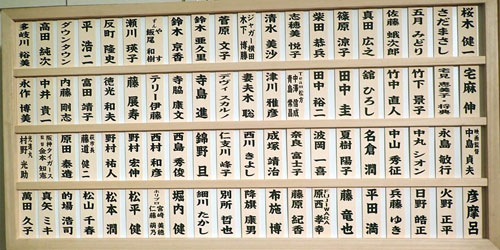 桜木健一
さだまさし
五月みどり
佐藤蛾次郎
真田広之
篠原涼子
柴田恭兵
志穂美悦子
清水美沙
ジャガー横田
木下博勝
菅原文太
鈴木亜久里
鈴木京香
瀬川瑛子
反町隆史
平浩二
ダウンタウン
高田純次
多岐川裕美
宅麻伸
竹下景子
竹中直人
舘ひろし
田中圭
田中裕二
津川雅彦
妻夫木聡
デヴィ・スカルノ
寺島進
寺脇康文
テリー伊藤
徳光和夫
富田靖子
内藤剛志
中井貴一
永作博美
中島貞夫
永島敏行
中丸シオン
中山秀征
名倉潤
夏樹陽子
波岡一喜
奈良富士子
成塚靖治
仁支川峰子
錦野旦
西島秀俊
西村和彦
野村宏伸
野村祐人
原田泰造
阪神タイガース
彦摩呂
火野正平
日野皓正
兵藤ゆき
平田満
藤竜也
FUJIWARA
原西孝幸
藤原紀香
布施博
降旗康男
別所哲也
細川たかし
堀内健
松平健
松本潤
松山千春
的場浩司
真矢ミキ
萬田久子